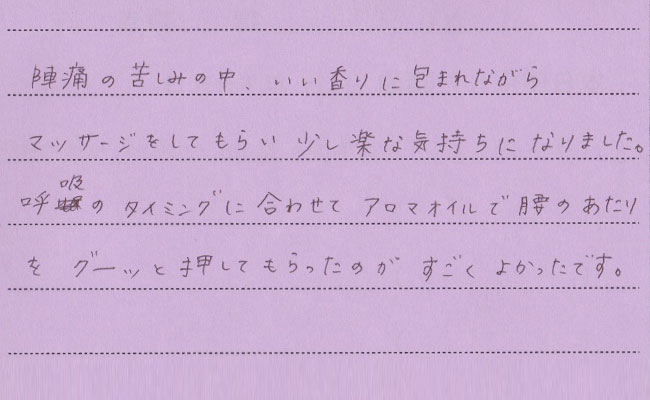 陣痛の苦しみの中、いい香りに包まれながら
マッサージをしてもらい少し楽な気持ちになりました。
呼吸のタイミングに合わせてアロマオイルで腰のあたり
をグーッと押してもらったのがすごくよかったです。